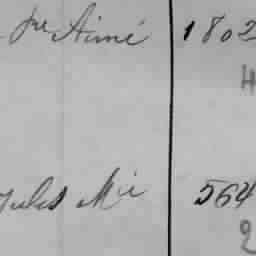 Jre Aimé 1802
4
Jules Mie 564
2